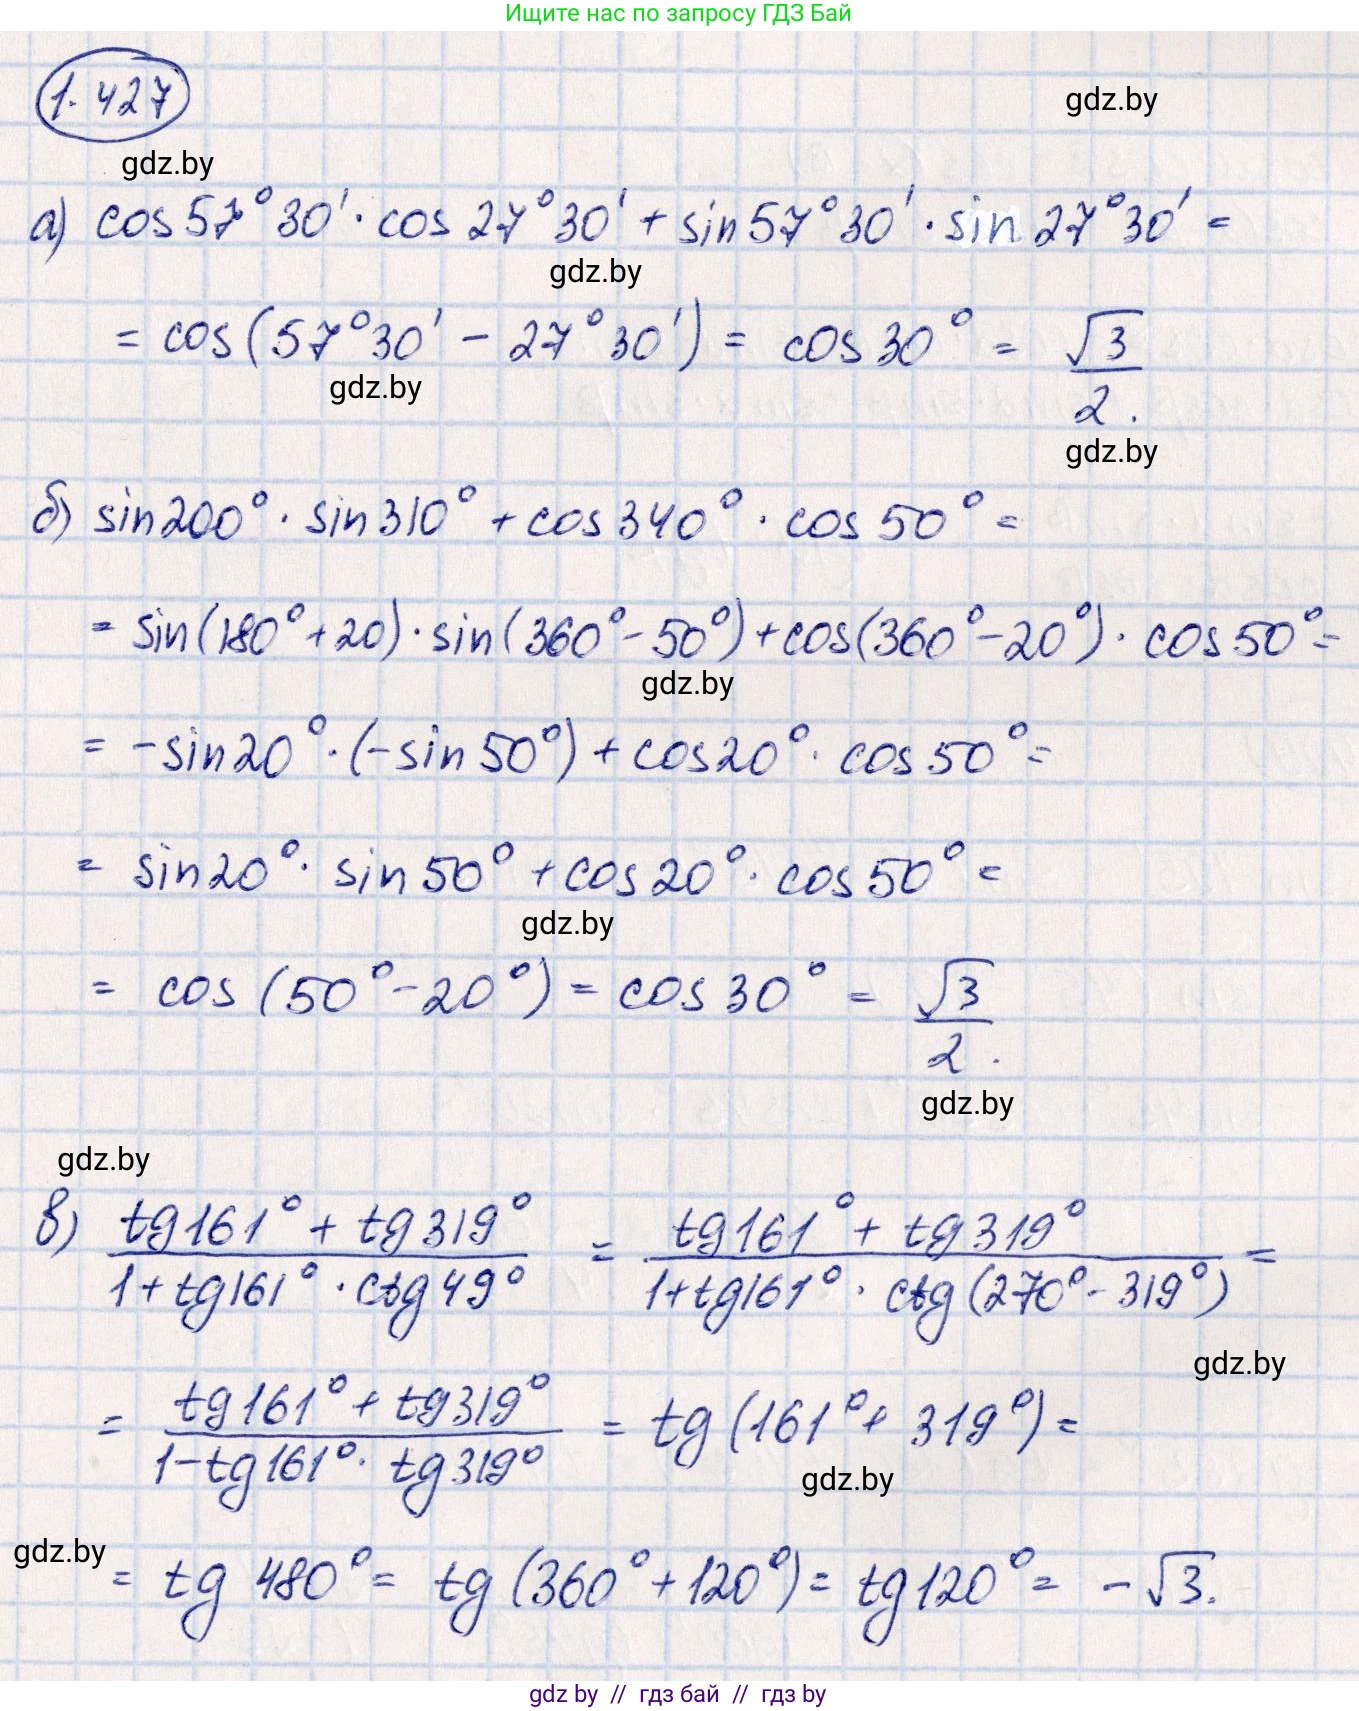 Ищите нас по запросу ГДЗ Бай
1.427
gdz.by
gdz.by
а) cos57°30'·cos27°30' + sin57°30'·sin27°30' =
gdz.by
= cos(57°30' - 27°30') = cos30° = √3/2.
gdz.by
gdz.by
б) sin200°·sin310° + cos340°·cos50° =
= sin(180°+20)·sin(360°-50°)+cos(360°-20°)·cos50° =
gdz.by
= -sin20°·(-sin50°) + cos20°·cos50° =
= sin20°·sin50° + cos20°·cos50° =
gdz.by
= cos(50°-20°) = cos30° = √3/2.
gdz.by
gdz.by
в) (tg161° + tg319°)/(1+tg161°·ctg49°) = (tg161° + tg319°)/(1+tg161°·ctg(270°-319°)) =
gdz.by
= (tg161° + tg319°)/(1-tg161°·tg319°) = tg(161°+319°) =
gdz.by
gdz.by
= tg480° = tg(360°+120°) = tg120° = -√3.
gdz by // гдз бай // гдз by